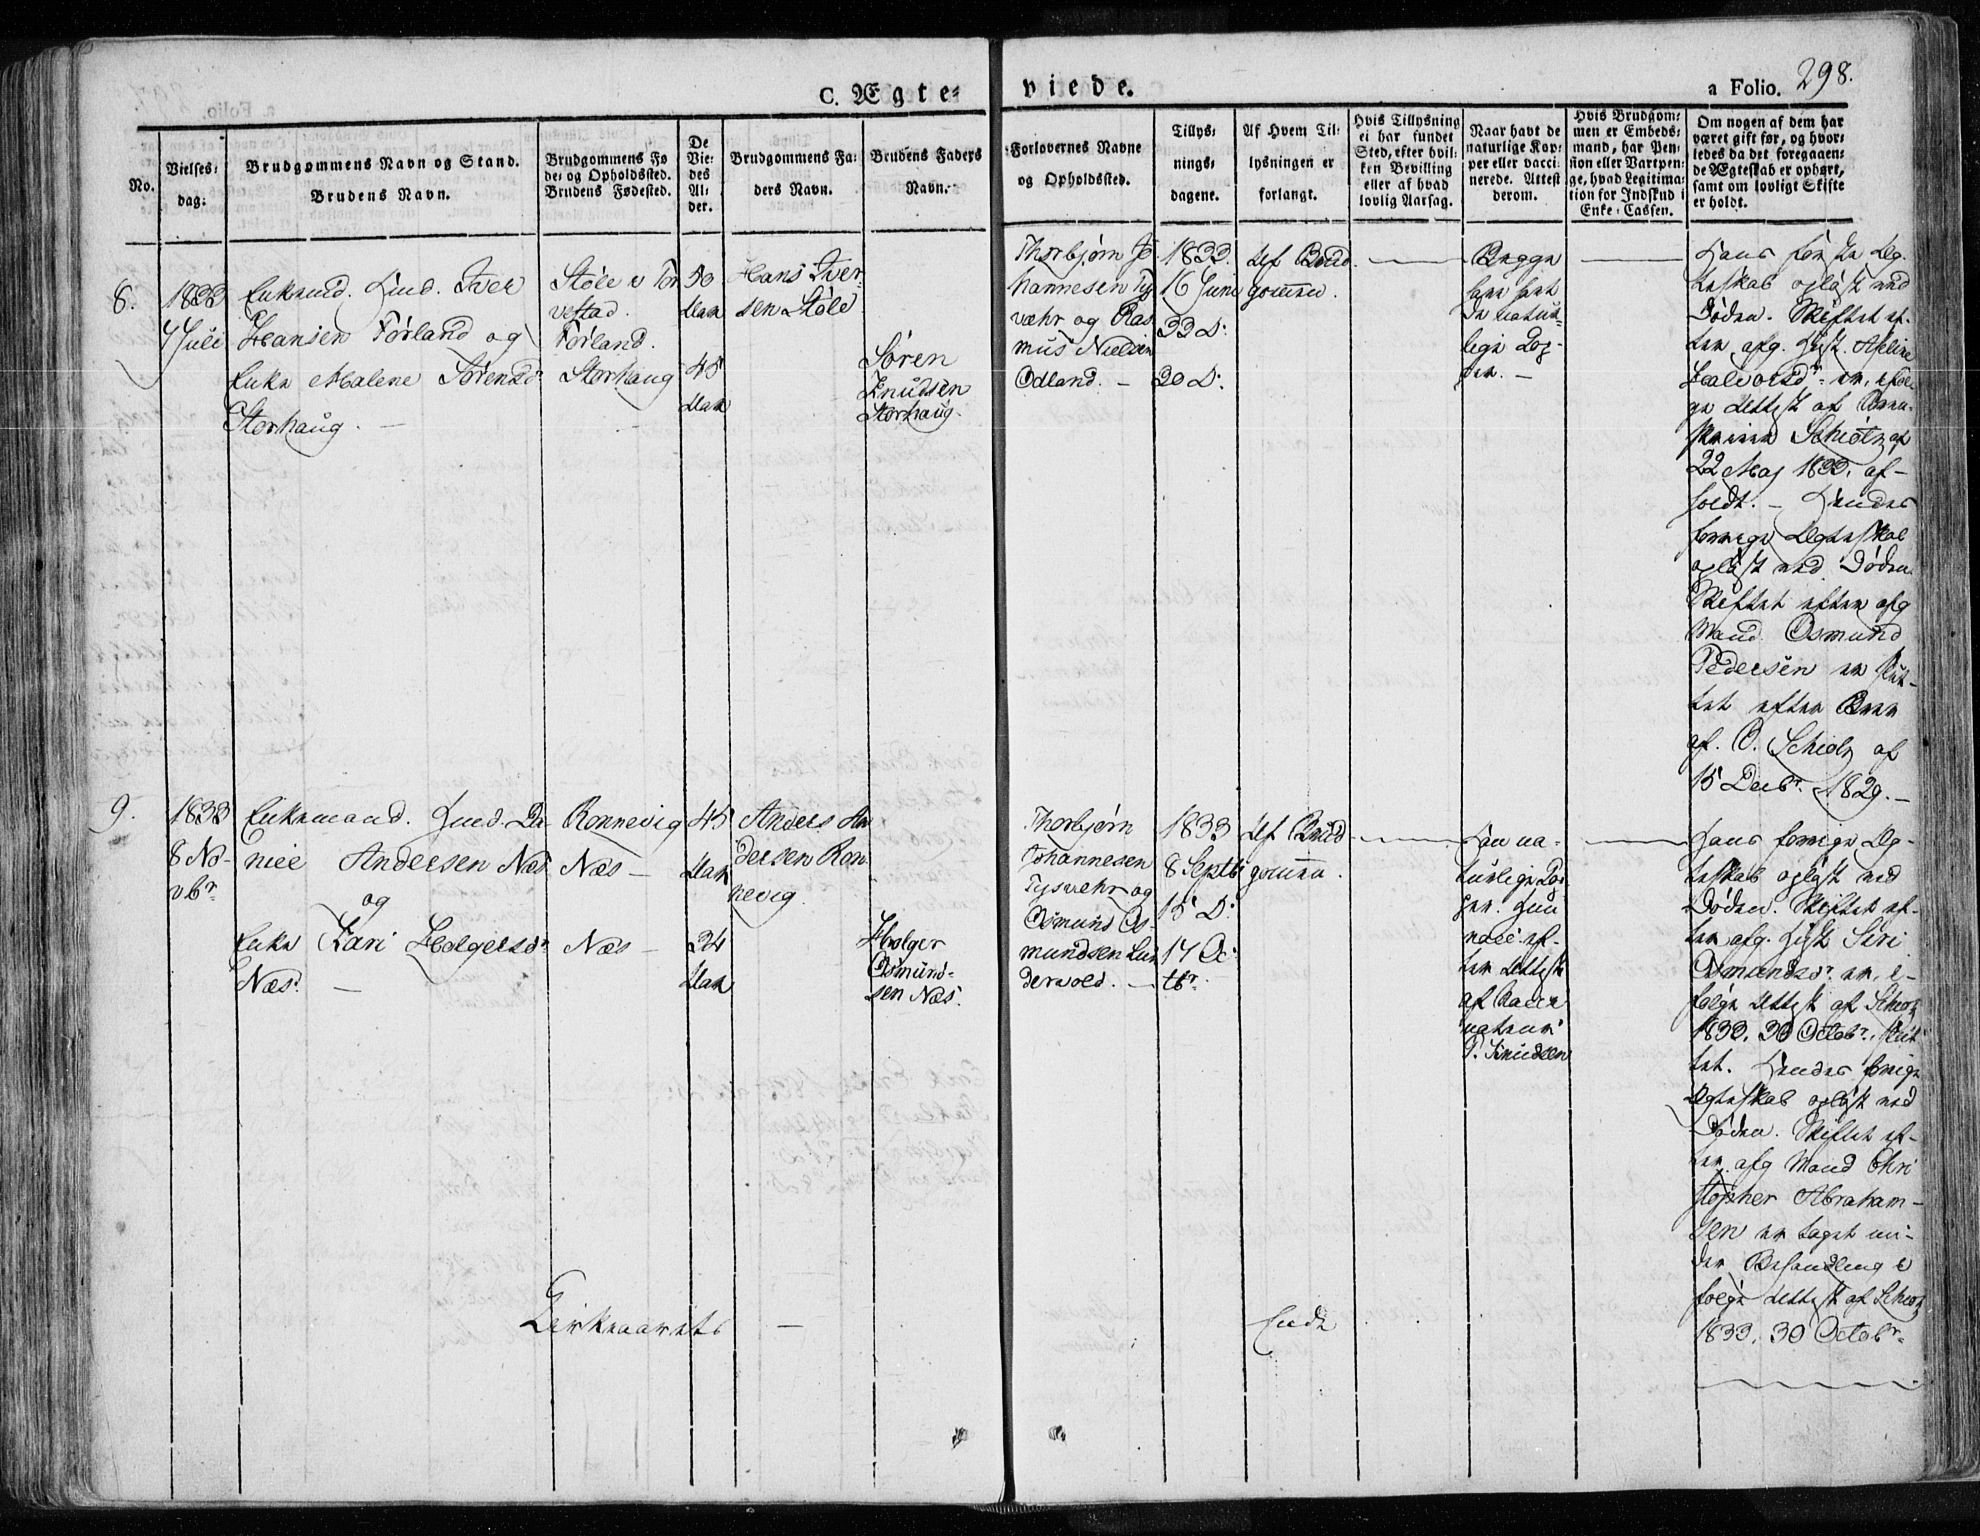 C. Ægte=
viede.
a Folio. 298.
No.
Vielses=
dag:
Brudgommens Navn og Stand.
Brudens Navn.
Brudgommens Fø
de= og Opholdssted.
Brudens Fødested.
De
Vie=
des
Al=
der.
Brudgommens Fa=
ders Navn.
Brudens Faders
Navn.
Forlovernes Navne
og Opholdssted.
Tillys=
nings=
dagene.
Af Hvem Til=
lysningen er
forlangt.
Hvis Tillysning
ei har fundet
Sted, efter hvil=
ken Bevilling
eller af hvad
lovlig Aarsag.
Naar havt de
naturlige Kop=
per eller vacci=
nerede. Attest
derom.
Hvis Brudgom=
men er Embeds=
mand, har Pen=
sion eller Vartpen=
ge, hvad Legitima=
tion for Indskud i
Enke=Cassen.
Om nogen af dem har
været gift før, og hvor=
ledes da det foregaaen=
de Ægteskab er ophørt,
samt om lovligt Skifte
er holdt.
8.
1833
7 Juli
Enkemd. Gmd. Iver
Hansen Førland og
Enke Malene Sørensdr
Storhaug. —
Støle i Tor
vestad.
Førland.
Storhaug
50
Aar
45
Aar
Hans Iver
sen Støle
Søren
Knudsen
Storhaug.
Thorbjørn Jo
hannesen Ty
svæhr og Ras
mus Nielsen
Odland. —
1833.
16 Juni
23 D:
30 D:
Af Brud
gommen.
Begge
have havt
de natur
lige Kop-
per. —
Hans første Æg
teskab opløst ved
Døden. Skiftet ef-
ter afg. Hust. Aseline
Halvorsdr er, iføl
ge Attest af
Schiøtz af
22 Maj 1833, af-
holdt. — Hendes
forrige Ægteskab
opløst ved Døden.
Skiftet efter afg
Mand Osmund
Pedersen er slut-
tet efter
af O. Schiøtz af
15 Decbr. 1829. —
9.
1833
8 No-
vbr
Enkemand. Gmd. Da
niel Andersen Næs
og
Enke Kari Holgersdr
Næs. —
Ronnevig
Næs —
Næs —
45
Aar
34
Aar
Anders An
dersen Ron
nevig.
Holger
Osmund-
sen Næs.
Thorbjørn
Johannesen
Tysvæhr og
Osmund Os-
mundsen Lun
dervold. —
1833
8 Septb
15 D:
17 Oc
tbr.
Af Brud
gommen.
Han na-
turlige Kop
per. Hun
vacc: ef-
ter Attest
af Vacci
nateur
P. Knudsen
Hans forrige Æg-
teskab opløst ved
Døden. Skiftet ef-
ter afg. Hust Siri
Osmundsdr er, i-
følge Attest af Schiøtz
1833, 30 Octobr, slut
tet. Hendes forrige
Ægteskab opløst ved
Døden. Skiftet ef-
ter afg Mand Chri
stopher Abraham-
sen er taget un-
der Behandling i
følge Attest af Schiøtz
1833, 30 Octobr.
Kirkeaarets —
Ende